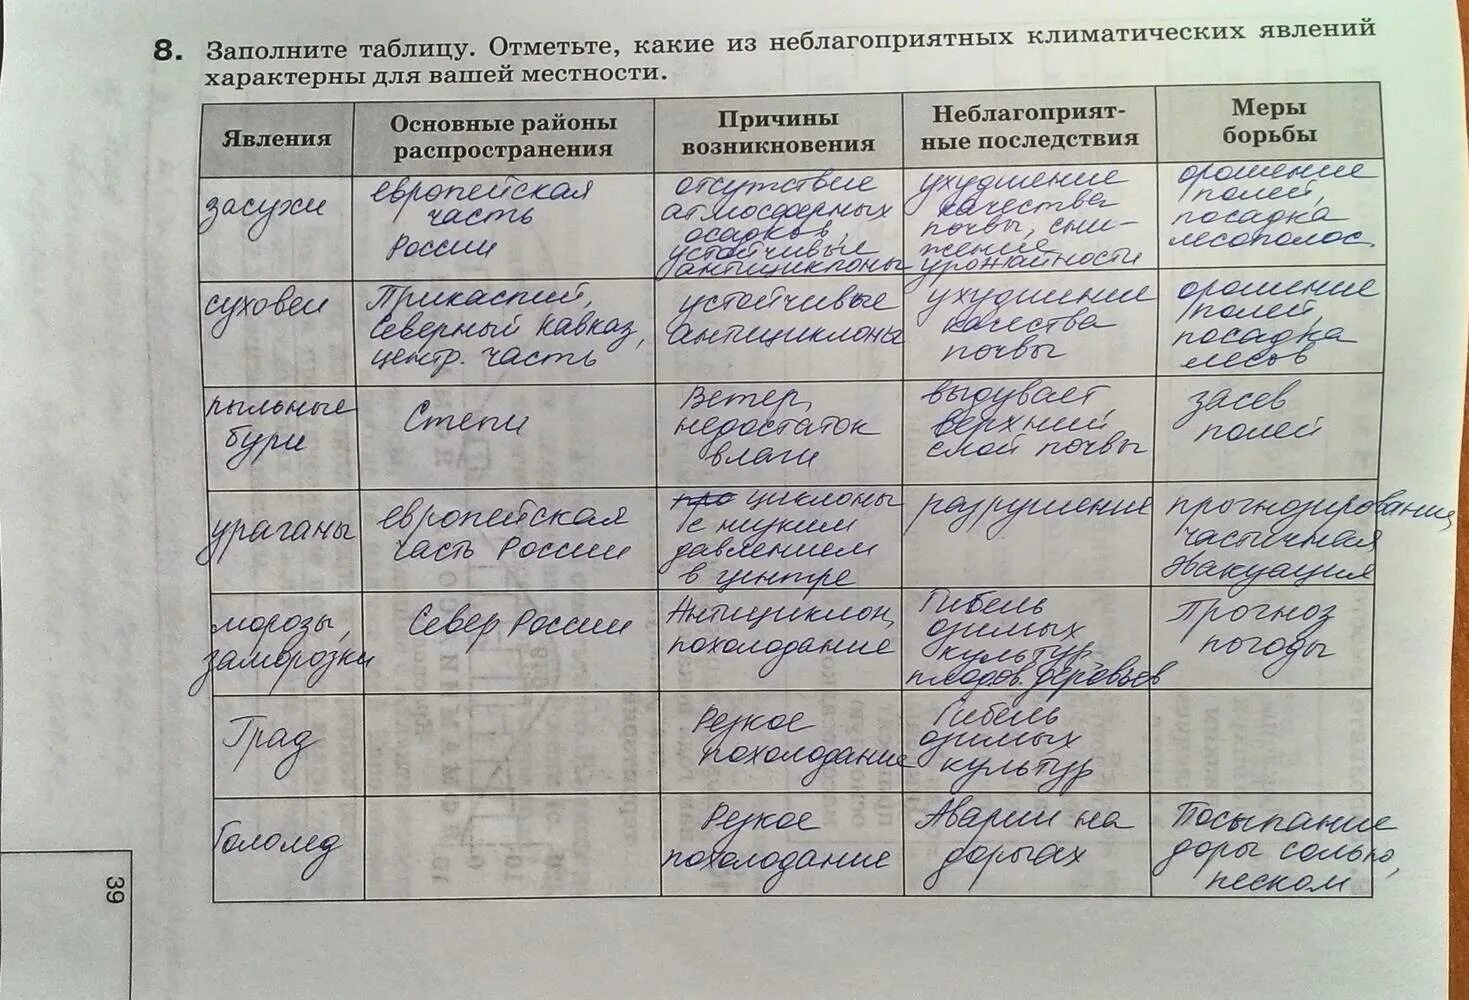 8. Заполните таблицу. Отметьте, какие из неблагоприятных климатических явлений
характерны для вашей местности.
Явления
Основные районы
распространения
Причины
возникновения
Неблагоприят-
ные последствия
Меры
борьбы
засухи
европейская
часть
России
отсутствие
атмосферных
осадков,
устойчивые
антициклоны
ухудшение
качества
почвы, сни-
жение
урожайности
орошение
полей,
посадка
лесополос
суховеи
Прикаспий,
Северный Кавказ,
центр. часть
устойчивые
антициклоны
ухудшение
качества
почвы
орошение
полей,
посадка
лесов
пыльные
бури
Степи
Ветер,
недостаток
влаги
выдувает
верхний
слой почвы
засев
полей
ураганы
европейская
часть России
циклоны
с низким
давлением
в центре
разрушение
прогнозирование,
частичная
эвакуация
морозы,
заморозки
Север России
Антициклон,
похолодание
Гибель
озимых
культур
плодов. деревьев
Прогноз
погоды
Град
Резкое
похолодание
Гибель
озимых
культур
Гололед
Резкое
похолодание
Аварии на
дорогах
Посыпание
доры солью,
песком
39